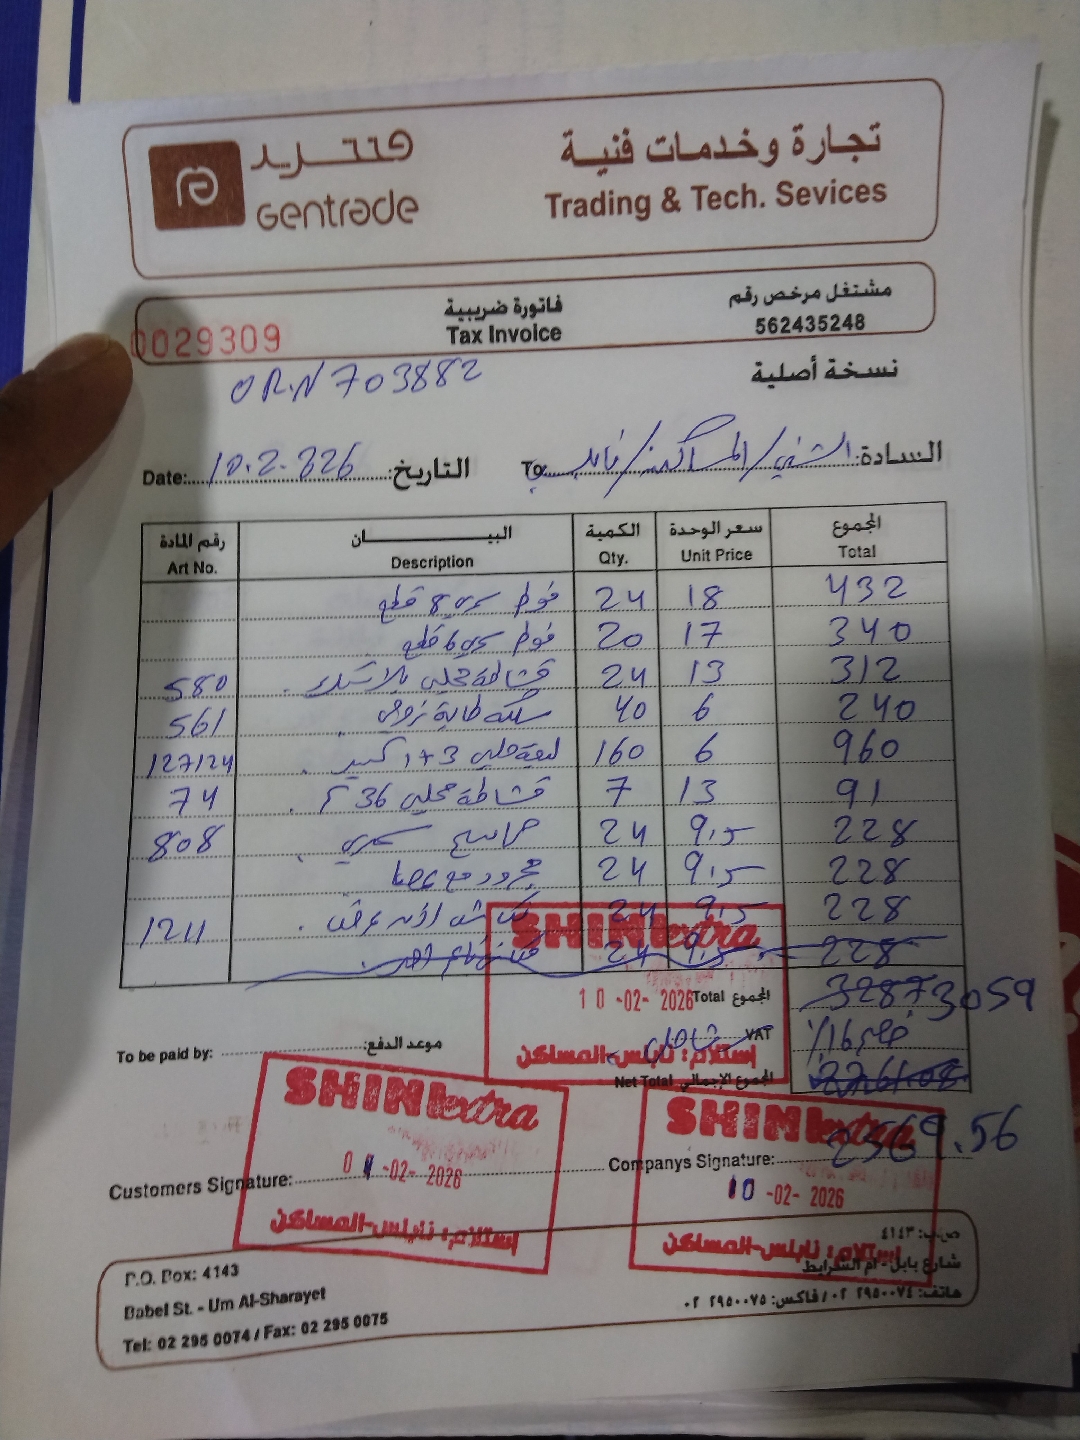 جنتريد
Gentrade
تجارة وخدمات فنية
Trading & Tech. Sevices
0029309
فاتورة ضريبية
Tax Invoice
مشتغل مرخص رقم
562435248
نسخة أصلية
OR.N 703882
السادة: الشني/المساكن/نابلس To:
التاريخ: 10.2.226 Date:
رقم المادة البيـــــــان الكمية سعر الوحدة المجموع
Art No. Description Qty. Unit Price Total
8 قطع 24 18 432
6 قطع 20 17 340
580 قشاطة مجلي بلاستيك 24 13 312
561 40 6 240
127/124 ليفة جلي 3+1 كبير 160 6 960
74 قشاطة مجلي 36 7 13 91
808 24 9.5 228
مجرود مع عصا 24 9.5 228
1211 24 9.5 228
24 9.5 228
المجموع Total 3287 3059
VAT شامل خصم 16%
المجموع الإجمالي Net Total
2569.56
To be paid by: موعد الدفع:
SHINI extra
10-02-2026
إستلام: نابلس-المساكن
SHINI extra
-02-2026
إستلام: نابلس-المساكن
SHINI extra
10-02-2026
إستلام: نابلس-المساكن
Customers Signature:
Companys Signature:
P.O. Box: 4143
Babel St. - Um Al-Sharayet
Tel: 02 295 0074 / Fax: 02 295 0075
ص.ب: ٤١٤٣
شارع بابل - أم الشرايط
هاتف: ٠٢ ٢٩٥٠٠٧٤ / فاكس: ٠٢ ٢٩٥٠٠٧٥